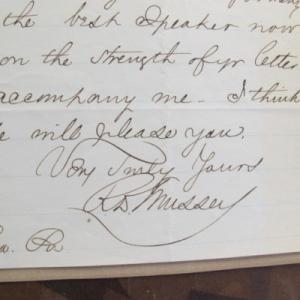 the besh Speaker now
on the strength of yr letter
accompany me - I think
will please you.
Very Truly Yours
R D Mussey